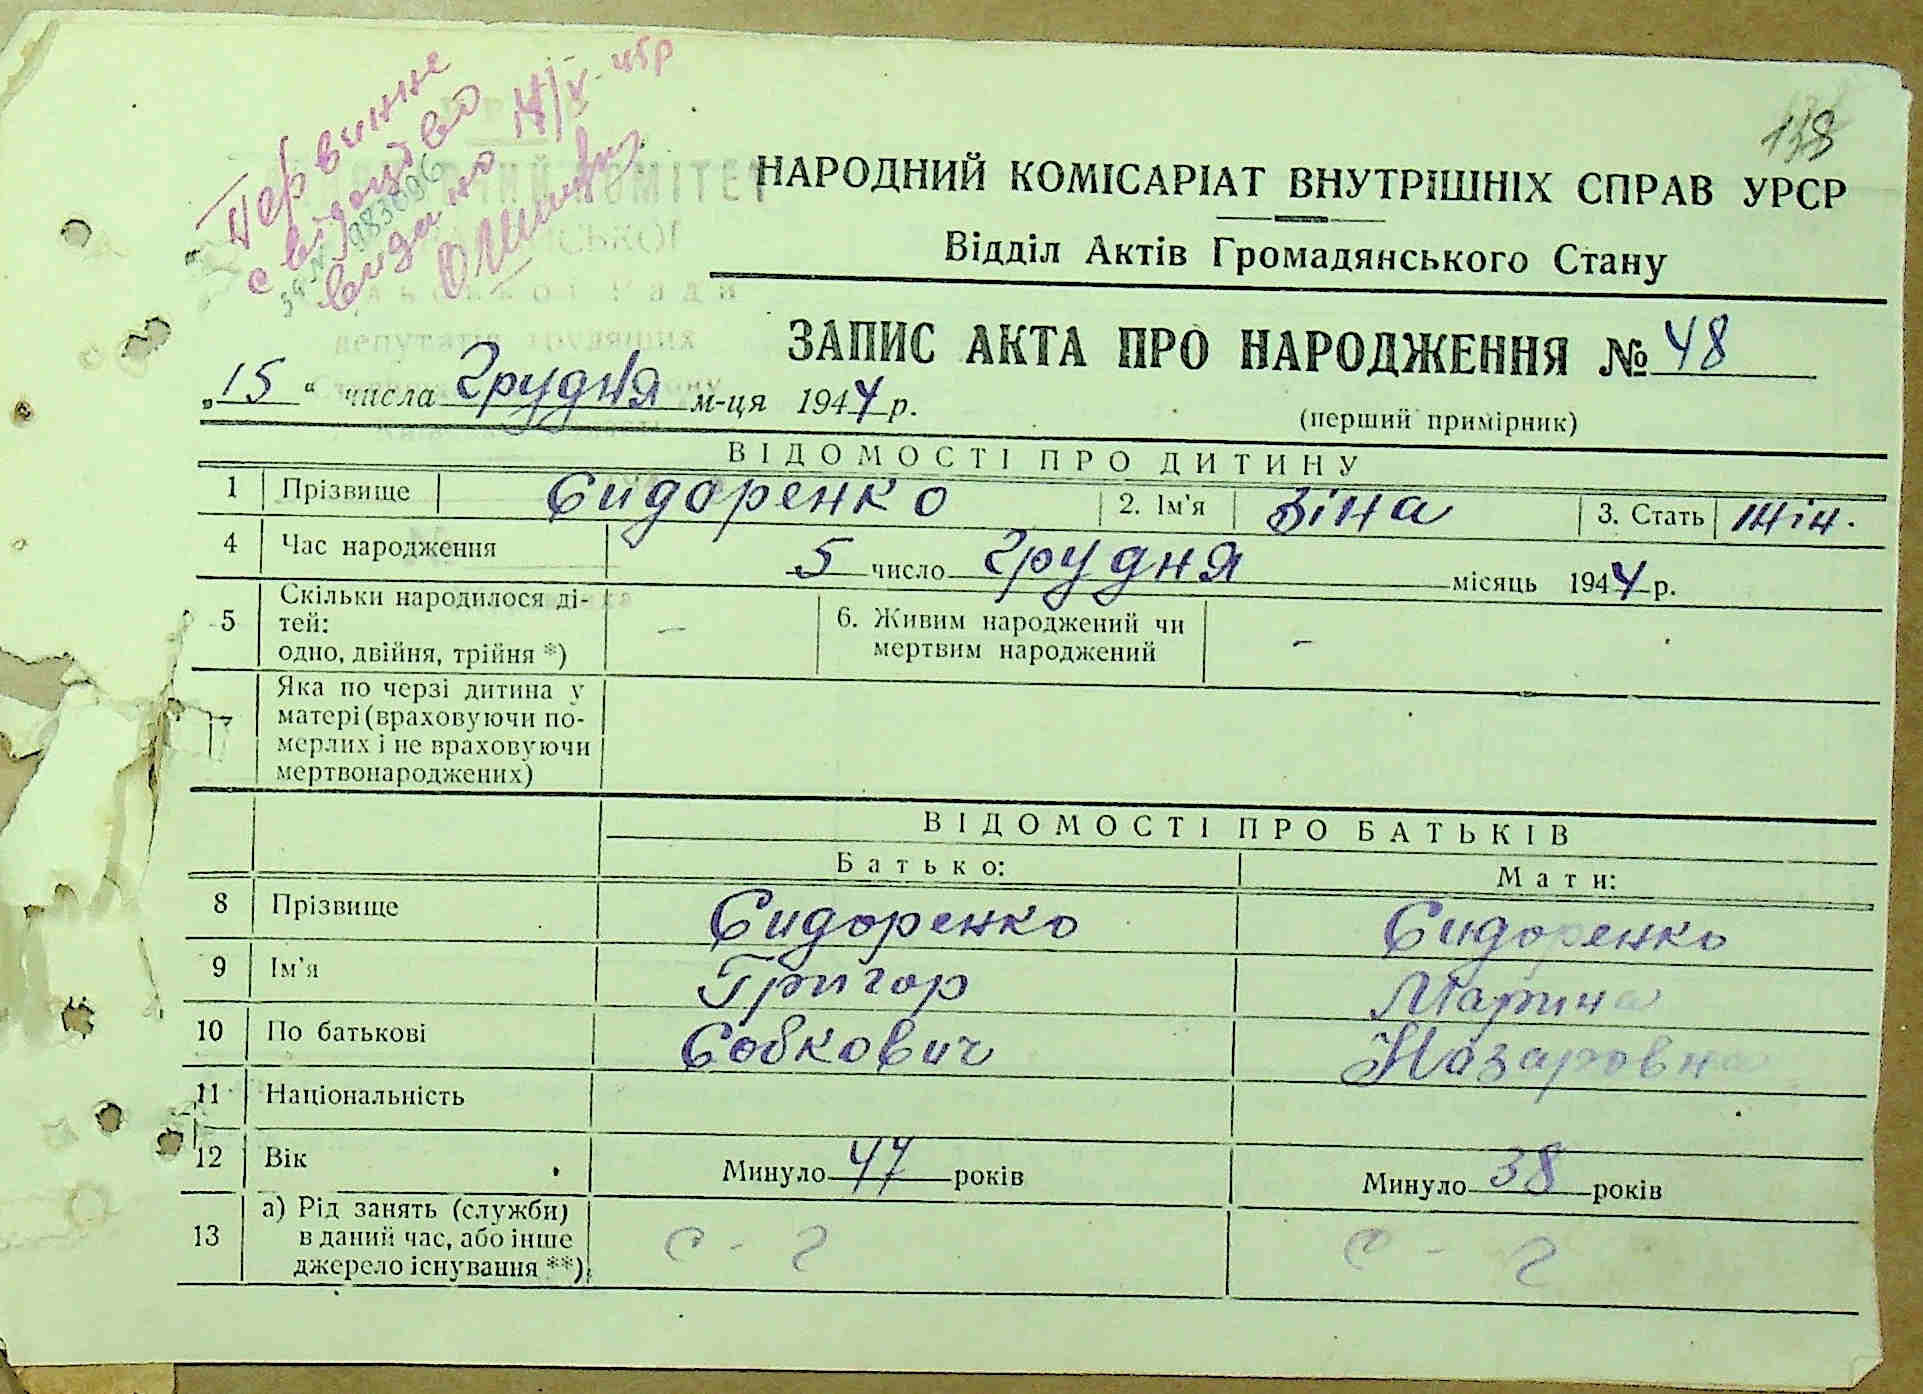 Первинне
свідоцтво
видано 14/X-45р
983096
138
НАРОДНИЙ КОМІСАРІАТ ВНУТРІШНІХ СПРАВ УРСР
Відділ Актів Громадянського Стану
ЗАПИС АКТА ПРО НАРОДЖЕННЯ № 48
„15“ числа Грудня м-ця 1944 р.
(перший примірник)
ВІДОМОСТІ ПРО ДИТИНУ
1 Прізвище Сидоренко 2. Ім'я Зіна 3. Стать жін.
4 Час народження 5 число Грудня місяць 1944 р.
5 Скільки народилося ді-
тей:
одно, двійня, трійня *) —
6. Живим народжений чи
мертвим народжений -
7 Яка по черзі дитина у
матері (враховуючи по-
мерлих і не враховуючи
мертвонароджених)
ВІДОМОСТІ ПРО БАТЬКІВ
Батько: Мати:
8 Прізвище Сидоренко Сидоренко
9 Ім'я Григор Марина
10 По батькові Собкович Назаровна
11 Національність
12 Вік Минуло 47 років Минуло 38 років
13 а) Рід занять (служби)
в даний час, або інше
джерело існування **)
с - г с - г